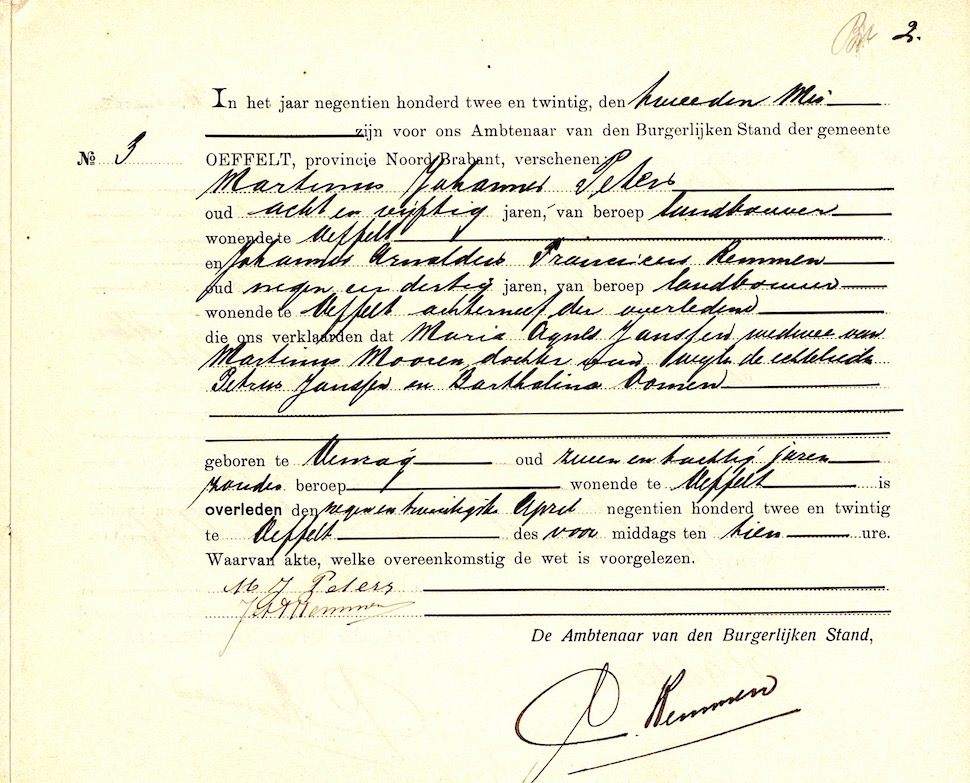 2.
In het jaar negentien honderd twee en twintig, den tweeden Mei
zijn voor ons Ambtenaar van den Burgerlijken Stand der gemeente
No 3 OEFFELT, provincie Noord-Brabant, verschenen:
Martinus Johannes Peters
oud acht en vijftig jaren, van beroep landbouwer
wonende te Oeffelt
en Johannes Arnoldus Franciscus Remmen
oud negen en dertig jaren, van beroep landbouwer
wonende te Oeffelt achterneef der overledene
die ons verklaarden dat Maria Agnes Janssen weduwe van
Martinus Mooren dochter van de echtelieden
Petrus Janssen en Bartholina Oomen
geboren te Venray oud zeven en tachtig jaren
zonder beroep wonende te Oeffelt is
overleden den negen en twintigste April negentien honderd twee en twintig
te Oeffelt des voor middags ten tien ure.
Waarvan akte, welke overeenkomstig de wet is voorgelezen.
M J Peters
J A F Remmen
De Ambtenaar van den Burgerlijken Stand,
Remmen